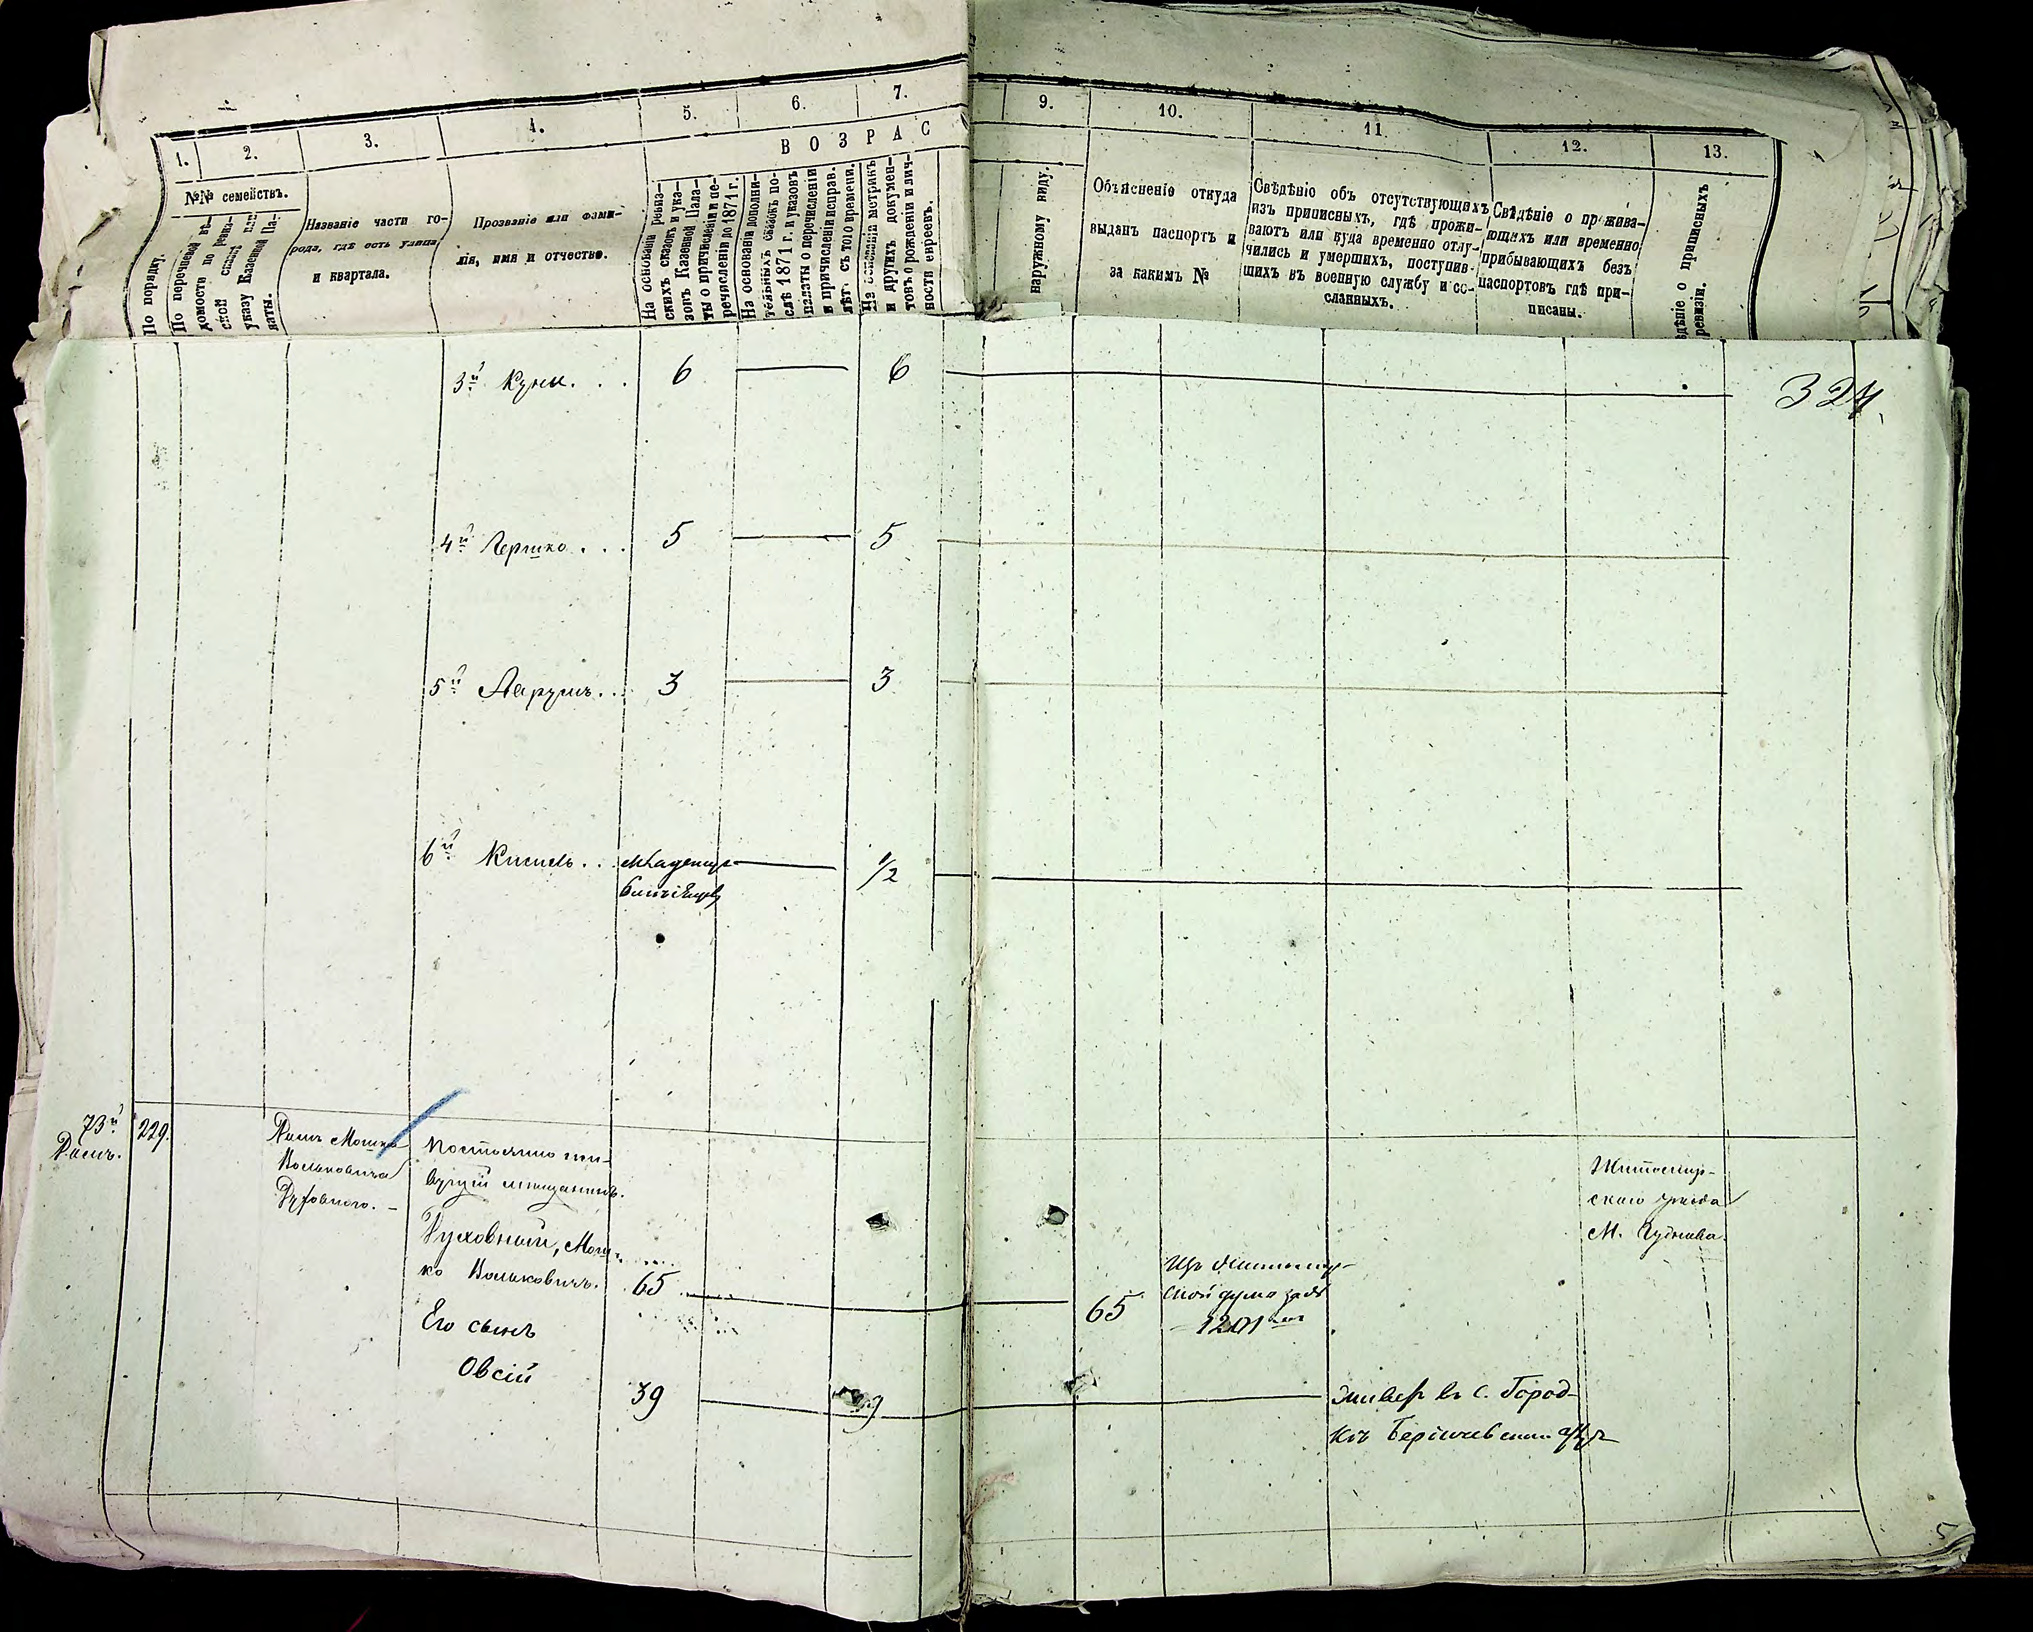 1.
2.
3.
4.
5.
6.
7.
9.
10.
11.
12.
13.
ВОЗРАС
№№ семействъ.
По порядку.
По перечневой вѣ-
домости по реви-
ской сказкѣ или
указу Казенной Па-
латы.
Названіе части го-
рода, гдѣ есть улица
и квартала.
Прозваніе или фами-
лія, имя и отчество.
На основаніи ревиз-
скихъ сказокъ и ука-
зовъ Казенной Пала-
ты о причисленіи и пе-
речисленіи до 1871 г.
На основаніи дополни-
тельныхъ сказокъ по-
слѣ 1871 г. и указовъ
палаты о перечисленіи
и причисленіи исправ.
лѣт. съ того времени.
На основаніи метрикъ
и другихъ докумен-
товъ о рожденіи и лич-
ности евреевъ.
наружному виду.
Объясненіе откуда
выданъ паспортъ и
за какимъ №
Свѣдѣніе объ отсутствующихъ
изъ приписныхъ, гдѣ прожи-
ваютъ или куда временно отлу-
чились и умершихъ, поступив-
шихъ въ военную службу и со-
сланныхъ.
Свѣдѣніе о прожива-
ющихъ или временно
прибывающихъ безъ
паспортовъ гдѣ при-
писаны.
дѣніе о приписныхъ
ревизіи.
324
3й Куна... 6 6
4й Гершко... 5 5
5й Ларумъ... 3 3
6й Кисиль.. 1/2
73й 229.
Домъ.
Домъ Мошка
Вольковича
Духовного.
Постоянно жи-
вущій мещанинъ.
Духовный, Мош-
ко Вольковичъ. 65 65
Изъ Житомир-
ской думы за №
1201
Житомир-
скаго уѣзда
М. Чуднова
Его сынъ
Овсій 39
Живетъ въ с. Город-
къ Бердичевскаго
5